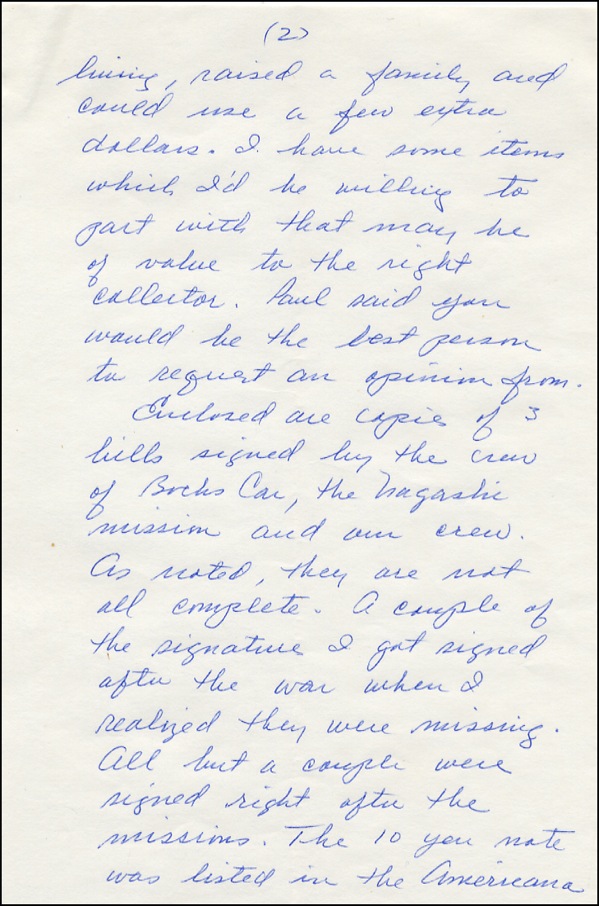 (2)
living, raised a family and
could use a few extra
dollars. I have some items
which I'd be willing to
part with that may be
of value to the right
collector. Paul said you
would be the best person
to request an opinion from.
Enclosed are copies of 3
bills signed by the crew
of Bocks Car, the Nagaski
mission and our crew.
As noted, they are not
all complete. A couple of
the signature I got signed
after the war when I
realized they were missing.
All but a couple were
signed right after the
missions. The 10 yen note
was listed in the Americana